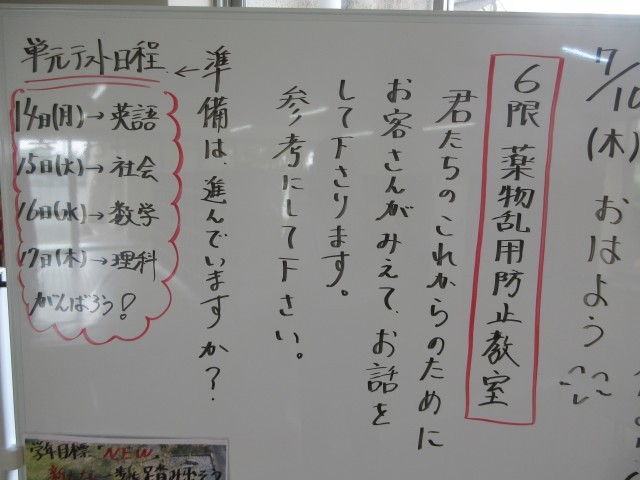 7/10(木) おはよう
6限 薬物乱用防止教室
君たちのこれからのために
お客さんがみえて、お話を
して下さります。
参考にして下さい。
準備は、進んでいますか?
単元テスト日程
14日(月)→英語
15日(火)→社会
16日(水)→数学
17日(木)→理科
がんばろう!
学年目標 NEW